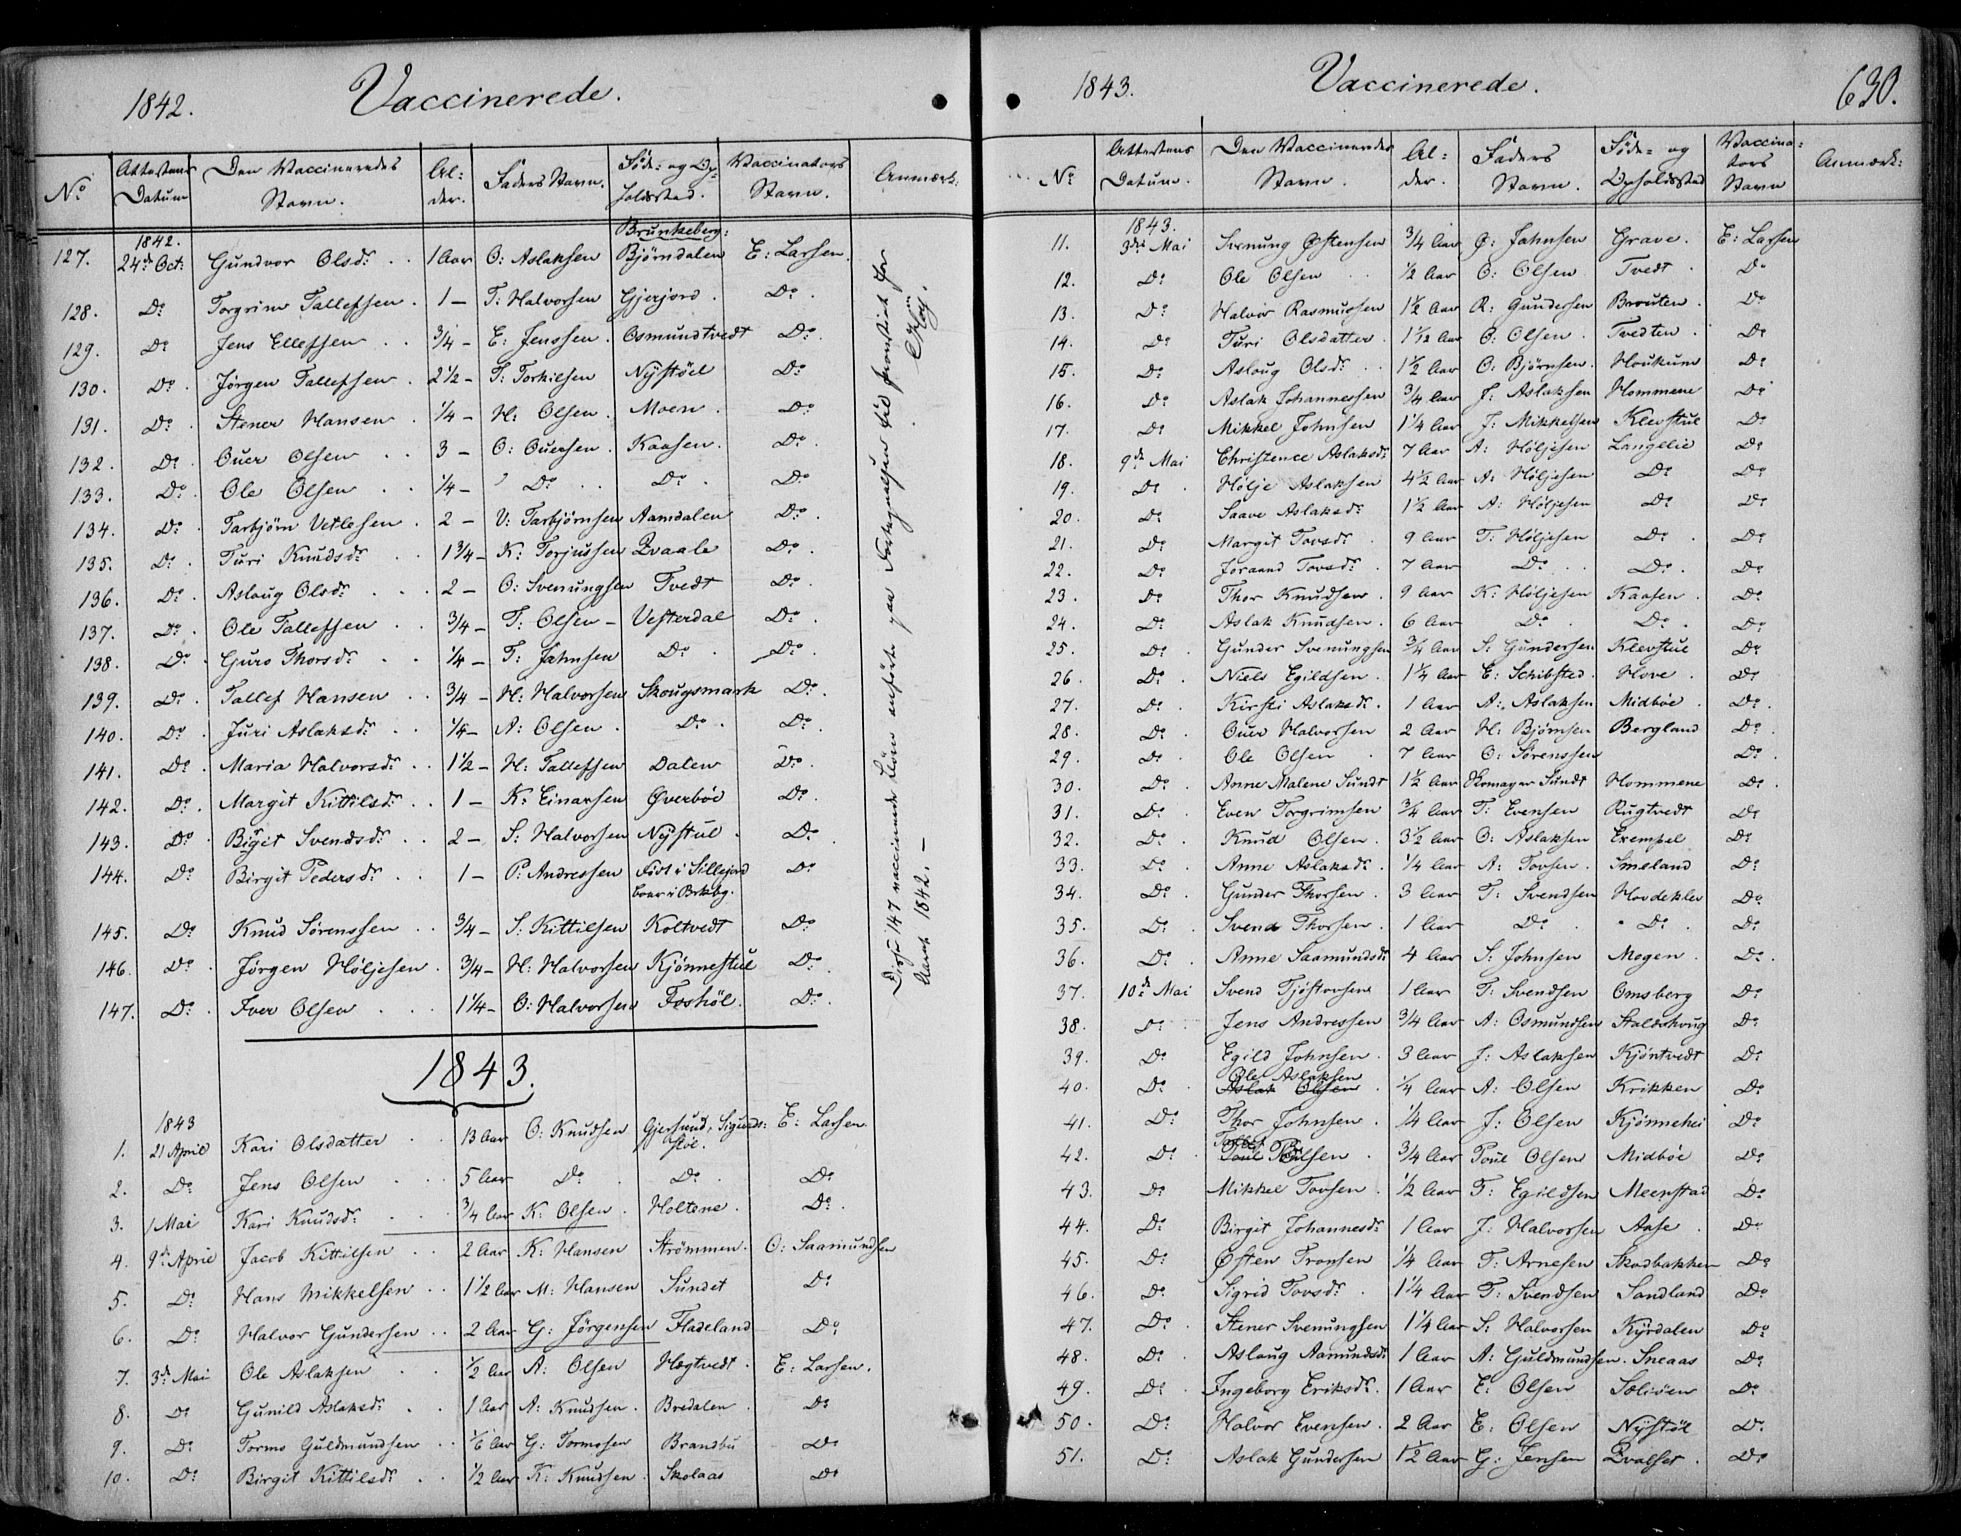 1842. Vaccinerede.
No Attestens Datum Den Vaccineredes Navn. Al-der. Faders Navn. Föde- og Op-holdssted. Vaccinators Navn. Anmærk:
1842. Brunkeberg:
127. 24de Oct: Gundvor Olsdr. 1 Aar O: Aslaksen Björndalen E: Larsen.
128. Do Torgrim Tallefsen. 1 — T: Halvorsen Gjerjord. Do.
129. Do Jens Ellefsen 3/4 — E: Jenssen. Osmundtvedt Do.
130. Do. Jörgen Tallefsen. 2 1/2 — T: Torkilsen Nystöel Do
131. Do. Stener Hansen 1/4 — H: Olsen. Moen. Do.
132. Do. Ouer Olsen 3 — O: Ouersen. Kaasen. Do.
133. Do. Ole Olsen 1/4 — Do Do. Do
134. Do. Tarbjörn Vetlesen. 2 — V: Tarbjörnsen Aamdalen Do.
135. Do. Turi Knudsdr. 1 3/4 — K: Torjussen Qvaale Do.
136. Do. Aslaug Olsdr. 2 — O: Svenungsen Tvedt Do.
137. Do. Ole Tallefsen 3/4 — T: Olsen — Vesterdal Do.
138. Do. Guro Thorsdr. 1/4 — T: Jahnsen Do. Do.
139. Do. Tallef Hansen 3/4 — H: Halvorsen Skougsmark Do.
140. Do. Juri Aslaksdr. 1/4 — A: Olsen. Do. Do.
141. Do. Maria Halvorsdr. 1 1/2 — H: Tallefsen Dalen Do.
142. Do. Margit Kittilsdr. 1 — K: Einarsen Øverböe Do.
143. Do. Birgit Svendsdr. 2 — S: Halvorsen Nystul. Do.
144. Do. Birgit Pedersdr. 1 — P: Andressen Födt i Sillejord boer i Brkbg. Do
145. Do. Knud Sörenssen 3/4 — S: Kittilsen Koltvedt Do.
146. Do. Jörgen Höljesen. 3/4 — H: Halvorsen Kjönnestul Do.
147. Do. Iver Olsen 1 1/4 — O: Halvorsen Foshöl. Do.
Disse 147 vaccinerede ere anførte paa
Aaret 1842. —
1843.
1843
1. 21 April Kari Olsdatter 13 Aar O: Knudsen Gjersund, Sigurds: stöl. E: Larsen
2. Do Jens Olsen 5 Aar Do. Do. Do
3. 1 Mai Kari Knudsdr. 3/4 Aar K: Olsen. Holtene. Do.
4. 9de April Jacob Kittilsen 2 Aar K: Hansen Strömmen. O: Saamundsen
5. Do. Hans Mikkelsen 1 1/2 Aar M: Hansen Sundet Do
6. Do. Halvor Gundersen 2 Aar G: Jörgensen Fladeland Do
7. 3de Mai Ole Aslaksen 1/2 Aar A: Olsen Hægtvedt. E: Larsen.
8. Do Gunild Aslaksdr. 1 Aar A: Knudsen. Bredalen. Do
9. Do. Tormo Guldmundsen 1/6 Aar G: Tormosen Brandbu Do
10. Do. Birgit Kittilsdr. 1/2 Aar K: Knudsen. Skolaas Do
1843. Vaccinerede. 630.
No Attestens Datum. Den Vaccineredes Navn. Al-der. Faders Navn. Föde- og Opholdssted Vaccina-tors Navn Anmærk:
1843.
11. 3die Mai Svenung Østensen 3/4 Aar Ø: Jahnsen Grave. E: Larsen
12. Do. Ole Olsen 1/2 Aar O: Olsen Tvedt Do
13. Do. Halvor Rasmussen 1 1/2 Aar R: Gundersen Brouten. Do
14. Do. Turi Olsdatter 1 1/2 Aar O: Olsen Tvedten. Do
15. Do. Aslaug Olsdr. 1 1/2 Aar O: Björnsen. Houkum Do
16. Do. Aslak Johannessen 3/4 Aar J: Aslaksen Hommene Do
17. Do. Mikkel Johnsen 1 1/4 Aar J: Mikkelsen Klevstul Do
18. 9de Mai Christence Aslaksdr. 7 Aar A: Höljesen Langelie Do
19. Do. Hölje Aslaksen 4 1/2 Aar A: Höljesen Do Do
20. Do Saave Aslaksdr. 1 1/2 Aar A: Höljesen Do Do
21. Do. Margit Tovsdr. 9 Aar T: Höljesen Do. Do.
22. Do. Joraand Tovsdr. 7 Aar Do. Do. Do
23. Do Thor Knudsen. 9 Aar K: Höljesen Kaasen. Do.
24. Do. Aslak Knudsen. 6 Aar Do. Do. Do
25. Do. Gunder Svenungsen 3/4 Aar S: Gundersen Klevstul Do
26. Do. Niels Egildsen 1 1/4 Aar E: Schibsted. Hove. Do
27. Do. Kirsti Aslaksdr. 1 Aar A: Aslaksen Midböe. Do.
28. Do. Ouer Halvorsen 2 Aar H: Björnsen Bergland Do.
29. Do. Ole Olsen 7 Aar O: Sörenssen Do.
30. Do. Anne Malene Sundt 1 1/2 Aar Skomager Sundt Hommene Do.
31. Do. Even Torgrimsen 3/4 Aar T: Evensen Rugtvedt Do
32. Do. Knud Olsen. 3 1/2 Aar O: Aslaksen Exempel Do
33. Do. Anne Aslaksdr. 1/4 Aar A: Tovsen. Smeland Do
34. Do. Gunder Thorsen. 3 Aar T: Svendsen Hovdeklev Do
35. Do. Svend Thorsen. 1 Aar Do. Do. Do
36. Do. Anne Saamundsdr. 4 Aar S: Johnsen Mogen. Do.
37. 10de Mai Svend Tjöstovsen 1 Aar T: Svendsen Omsberg Do
38. Do. Jens Andressen 3/4 Aar A: Osmundsen Staldshoug Do
39. Do. Egild Johnsen. 3 Aar J: Aslaksen Kjöntvedt Do
40. Do. Ole Aslaksen 1/4 Aar A: Olsen Krikken Do
41. Do. Thor Johnsen. 1/4 Aar J: Olsen Kjönnehei Do
42. Do. 3/4 Aar Poul Olsen Midböe Do
43. Do. Mikkel Tovsen. 1/2 Aar T: Egildsen Meenstad Do
44. Do. Birgit Johannesdr. 1 Aar J: Halvorsen Aase. Do
45. Do. Østen Tronsen 1/4 Aar T: Arnesen Skodbakken Do
46. Do. Sigrid Tovsdr. 1 1/4 Aar T: Svendsen Sandland Do
47. Do. Stener Svenungsen 1 1/4 Aar S: Halvorsen Kyrdalen Do
48. Do. Aslaug Aamundsdr. 1 Aar A: Guldmundsen. Sneaas Do
49. Do. Ingeborg Eriksdr. 1 Aar E: Olsen Do
50. Do. Halvor Evensen. 2 Aar E: Olsen Nystöl Do
51. Do. Aslak Gundersen 1 1/2 Aar G: Jensen Qvalset. Do